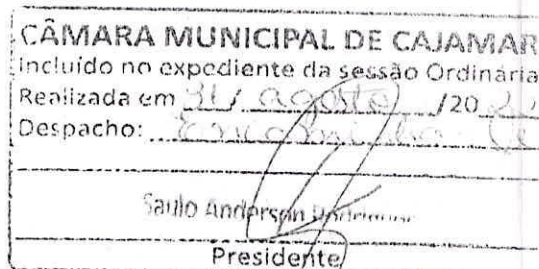 CÂMARA MUNICIPAL DE CAJAMAR
Incluído no expediente da sessão Ordinária
Realizada em 31/ agosto /20 20
Despacho:
Saulo Anderson Rodrigues
Presidente